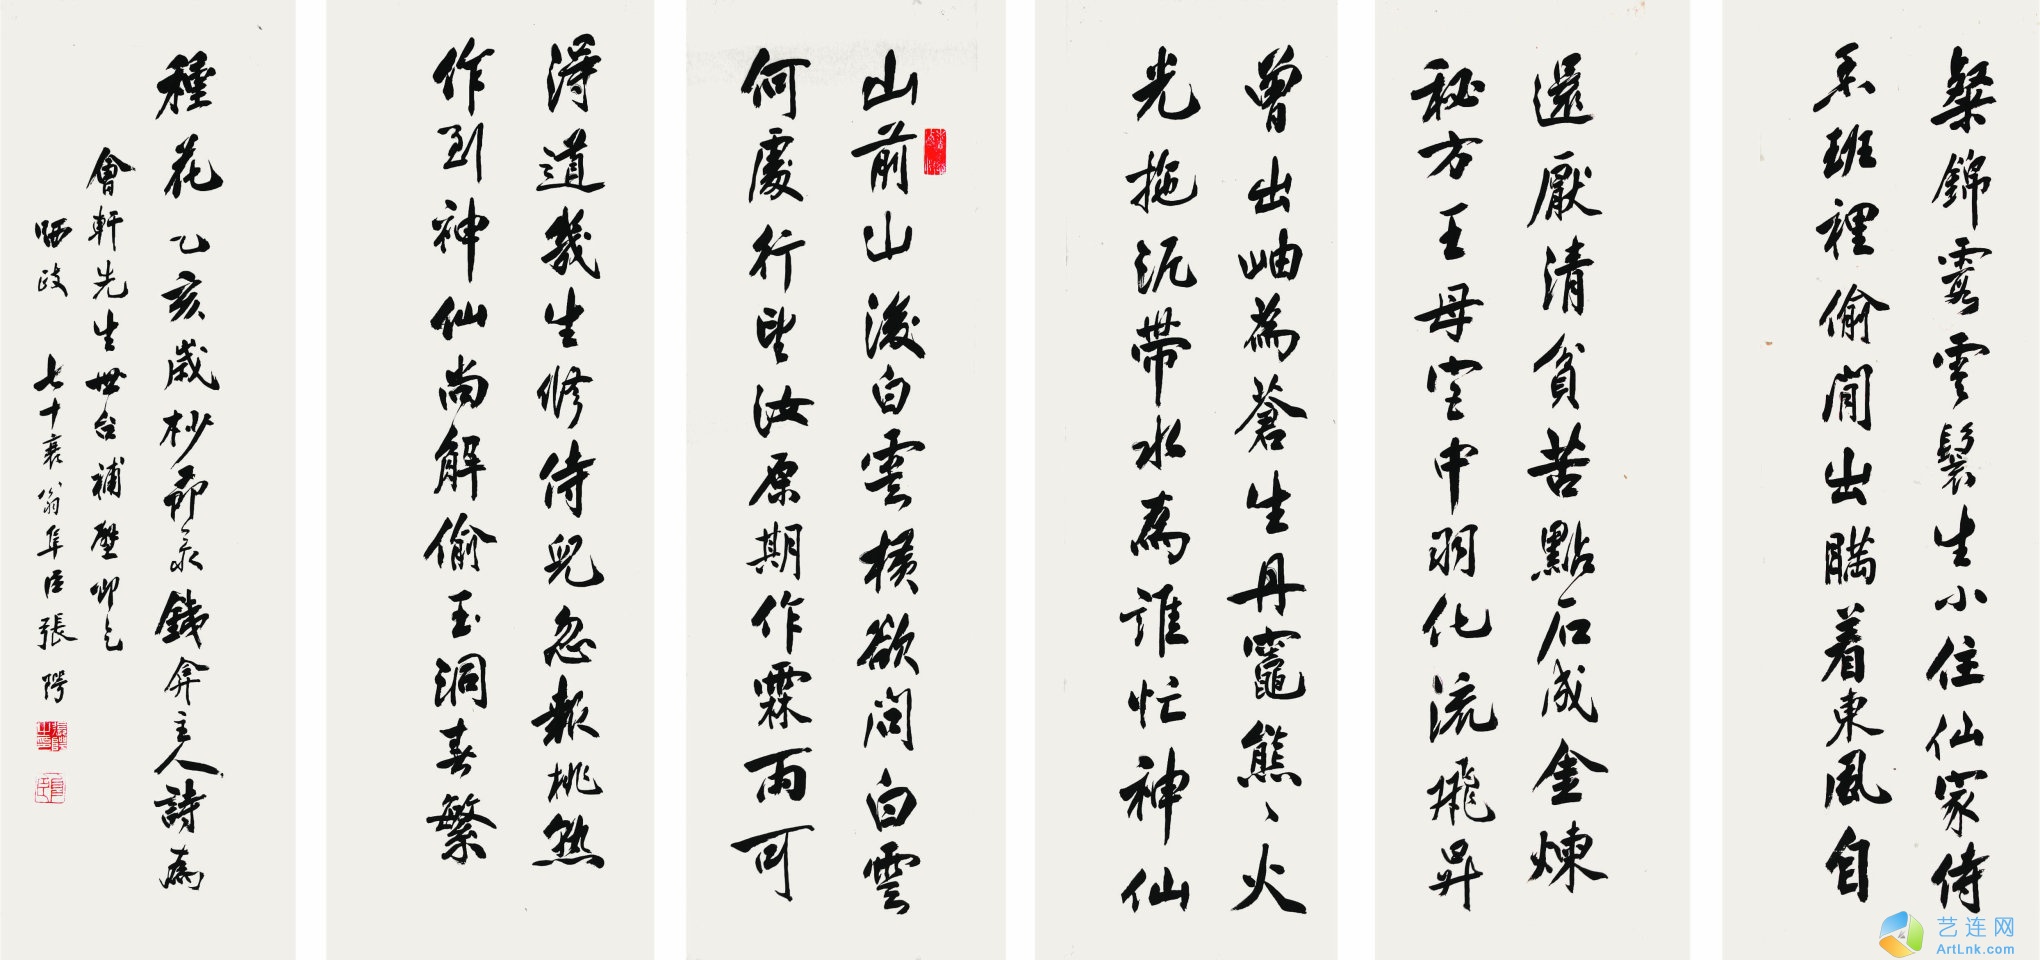 粲錦霞雲鬟生小住仙家侍
班裡偷閒出瞞着東風自
還厭清貧苦點石成金煉
秘方王母宮中羽化流飛昇
曾出岫為蒼生丹竈熊〻火
光拖泥帶水為誰忙神仙
山前山後白雲橫欲問白雲
何處行望汝原期作霖雨可
得道幾生修侍兒忽報桃熟
作到神仙尚解偷玉洞春繁
種花乙亥歲杪節录錢弇主人詩為
會軒先生世台補壁即乞
哂政 七十衰翁隼臣張
艺连网
ArtLnk.com